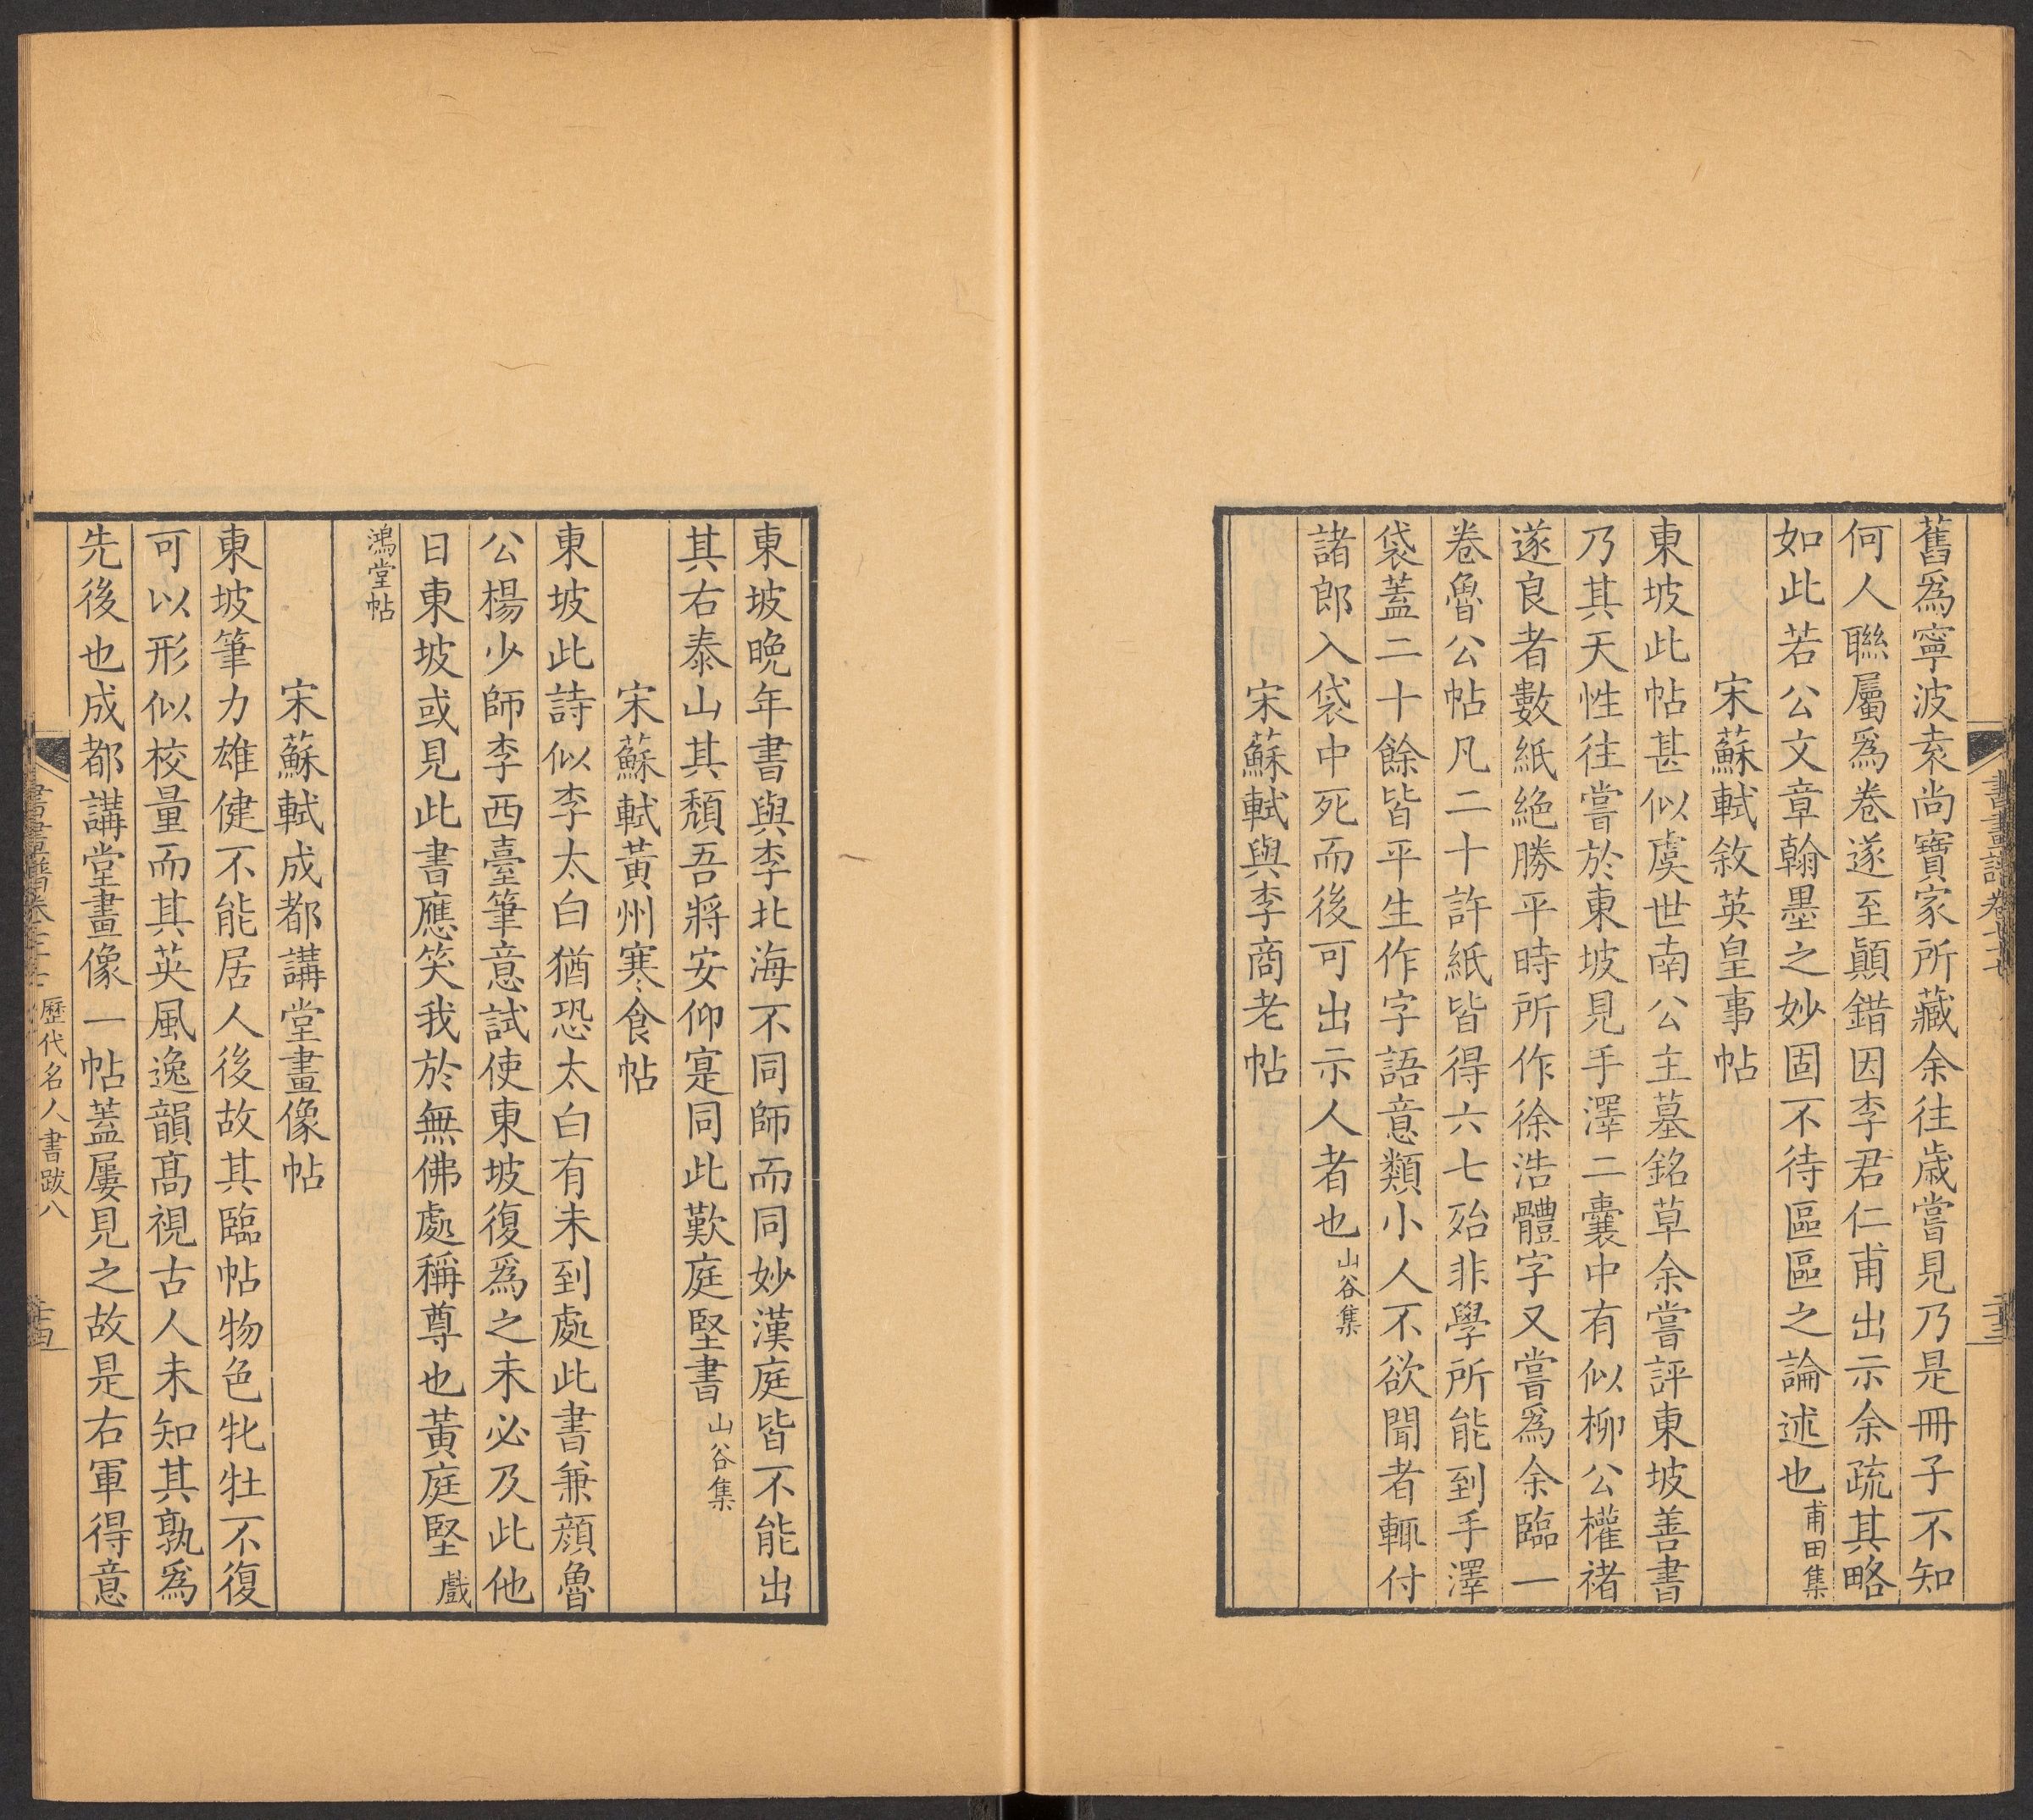 舊爲寧波袁尚寶家所藏余往歲嘗見乃是冊子不知
何人聯屬爲卷遂至顚錯因李君仁甫出示余疏其略
如此若公文章翰墨之妙固不待區區之論述也甫田集
宋蘇軾敘英皇事帖
東坡此帖甚似虞世南公主墓銘草余嘗評東坡善書
乃其天性往嘗於東坡見手澤二囊中有似柳公權褚
遂良者數紙絶勝平時所作徐浩體字又嘗爲余臨一
卷魯公帖凡二十許紙皆得六七殆非學所能到手澤
袋蓋二十餘皆平生作字語意類小人不欲聞者輒付
諸郎入袋中死而後可出示人者也山谷集
宋蘇軾與李商老帖
東坡晚年書與李北海不同師而同妙漢庭皆不能出
其右泰山其頽吾將安仰寔同此歎庭堅書山谷集
宋蘇軾黃州寒食帖
東坡此詩似李太白猶恐太白有未到處此書兼顔魯
公楊少師李西臺筆意試使東坡復爲之未必及此他
日東坡或見此書應笑我於無佛處稱尊也黃庭堅戲
鴻堂帖
宋蘇軾成都講堂畫像帖
東坡筆力雄健不能居人後故其臨帖物色牝牡不復
可以形似校量而其英風逸韻髙視古人未知其孰爲
先後也成都講堂畫像一帖蓋屢見之故是右軍得意
歷代名人書跋八